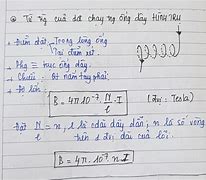 ⊛ Từ trg của dđ chạy trg ống dây HÌNH TRỤ
- Điểm đặt: Trong lòng ống
Tại điểm xét.
- Phg ≡ trục ống dây.
- Chiều: QT nắm tay phải.
- Độ lớn:
B = 4π10⁻⁷ N/l . I (Đv: Tesla)
Đặt N/l = n, l là chiều dài dây dẫn, n là số vòng
trên 1 đv dài của lõi.
B = 4π.10⁻⁷ n I